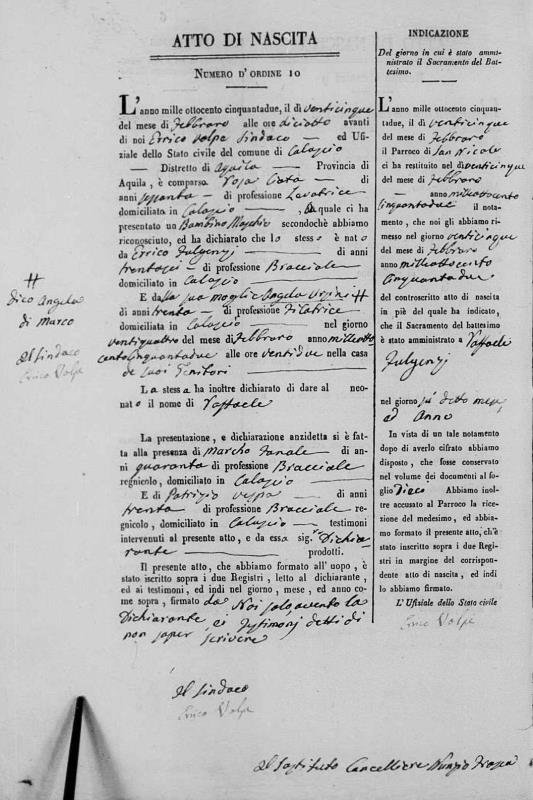 ATTO DI NASCITA
NUMERO D'ORDINE 10
L'anno mille ottocento cinquantadue, il dì venticinque
del mese di Febbraro alle ore diciotto avanti
di noi Errico Volpe Sindaco ed Ufi-
ziale dello Stato civile del comune di Calascio
Distretto di Aquila Provincia di
Aquila, è comparsa di
anni sessanta di professione Levatrice
domiciliata in Calascio , la quale ci ha
presentato un Bambino Maschio secondochè abbiamo
riconosciuto, ed ha dichiarato che lo stesso è nato
da Errico Fulgenzj di anni
trentasei di professione Bracciale
domiciliato in Calascio
E dalla sua moglie Angela #
di anni trenta di professione Filatrice
domiciliata in Calascio nel giorno
ventiquattro del mese di Febbraro anno milleotto
centocinquantadue alle ore ventidue nella casa
de suoi Genitori
La stessa ha inoltre dichiarato di dare al neo-
nato il nome di Raffaele
La presentazione, e dichiarazione anzidetta si è fat-
ta alla presenza di Marcho di an-
ni quaranta di professione Bracciale
regnicolo, domiciliato in Calascio
E di Patrizio di anni
trenta di professione Bracciale re-
gnicolo, domiciliato in Calascio testimoni
intervenuti al presente atto, e da essa sig.ra Dichia
rante prodotti.
Il presente atto, che abbiamo formato all'uopo, è
stato iscritto sopra i due Registri, letto al dichiarante,
ed ai testimoni, ed indi nel giorno, mese, ed anno co-
me sopra, firmato da Noi solo, avento la
Dichiarante ei Testimonj detti di
non saper scrivere
Il Sindaco
Errico Volpe
#
Dico Angela
di Marco
Il Sindaco
Errico Volpe
INDICAZIONE
Del giorno in cui è stato ammi-
nistrato il Sacramento del Bat-
tesimo.
L'anno mille ottocento cinquan-
tadue, il dì venticinque
del mese di Febbraro
il Parroco di San Nicola
ci ha restituito nel dì venticinque
del mese di Febbraro
anno milleottocento
cinquantadue il nota-
mento, che noi gli abbiamo ri-
messo nel giorno venticinque
del mese di Febbraro
anno milleottocento
cinquantadue
del controscritto atto di nascita
in piè del quale ha indicato,
che il Sacramento del battesimo
è stato amministrato a Raffaele
Fulgenzj
nel giorno detto mese,
ed Anno
In vista di un tale notamento
dopo di averlo cifrato abbiamo
disposto, che fosse conservato
nel volume dei documenti al fo-
glio dieco Abbiamo inol-
tre accusato al Parroco la rice-
zione del medesimo, ed abbia-
mo formato il presente atto, ch'è
stato inscritto sopra i due Regi-
stri in margine del corrispon-
dente atto di nascita, ed indi
lo abbiamo firmato.
L' Ufiziale dello Stato civile
Errico Volpe
Il Sostituto Cancelliere Nunzio